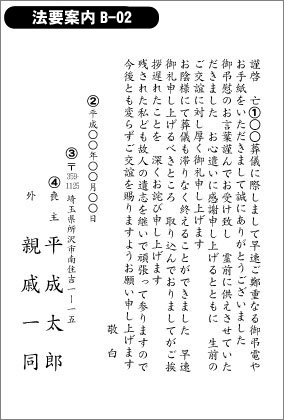 法要案内 B-02
謹啓 亡①○○葬儀に際しまして早速ご鄭重なる御弔電や
お手紙をいただきまして誠にありがとうございました
御弔慰のお言葉謹んでお受け致し 霊前に供えさせていた
だきました お心遣いに感謝申し上げるとともに 生前の
ご交誼に対し厚く御礼申し上げます
お陰様にて葬儀も滞りなく終えることができました 早速
御礼申し上げるべきところ 取り込んでおりましてがご挨
拶遅れたことを 深くお詫び申し上げます
残された私ども故人の遺志を継いで頑張って参りますので
今後とも変らずご交誼を賜りますようお願い申し上げます
敬白
②平成○○年○○月○○日
③〒359-1125 埼玉県所沢市南住吉一―一五
④喪主 平成太郎
外 親戚一同